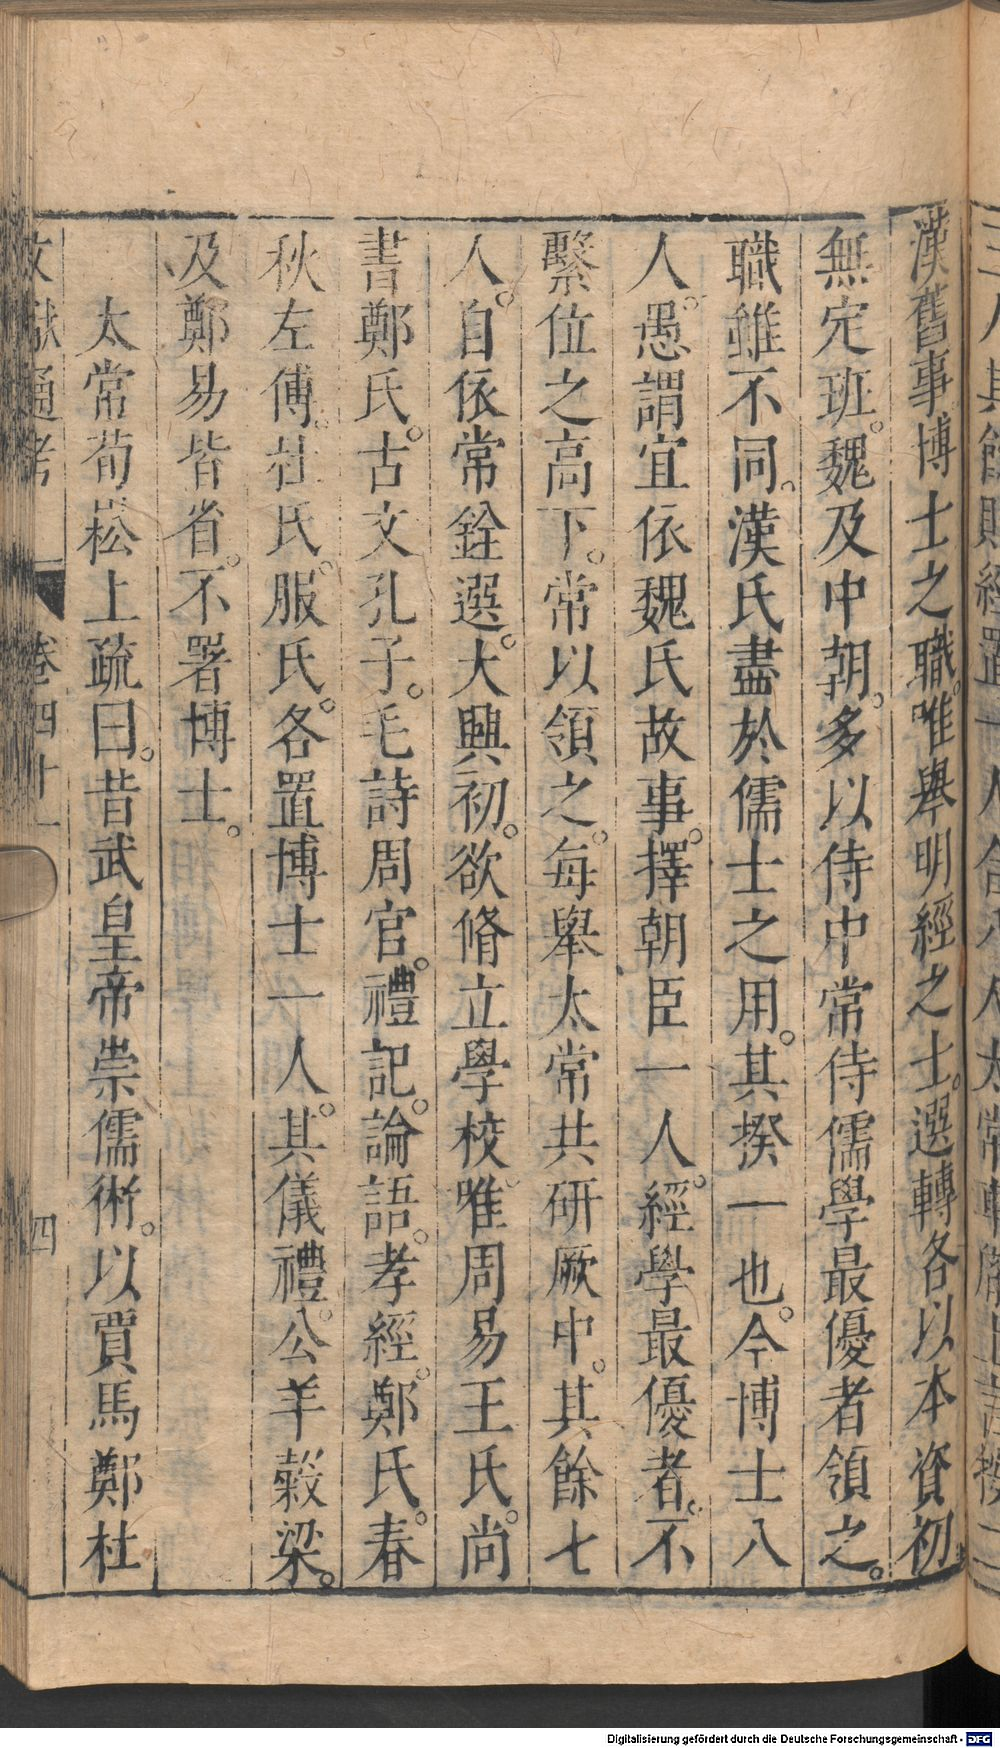 漢舊事博士之職。唯舉明經之士。選轉各以本資初
無定班。魏及中朝。多以侍中常侍儒學最優者領之。
職雖不同。漢氏盡於儒士之用。其揆一也。今博士八
人。愚謂宜依魏氏故事。擇朝臣一人。經學最優者。不
繫位之高下。常以領之。每舉太常共研厥中。其餘七
人。自依常銓選。大興初。欲脩立學校。唯周易王氏。尚
書鄭氏。古文孔子。毛詩周官。禮記。論語。孝經。鄭氏。春
秋左傳。杜氏。服氏。各置博士一人。其儀禮。公羊穀梁。
及鄭易皆省。不署博士。
太常荀崧上疏曰。昔武皇帝崇儒術。以賈馬鄭杜
文獻通考 卷四十一 四
Digitalisierung gefördert durch die Deutsche Forschungsgemeinschaft - DFG